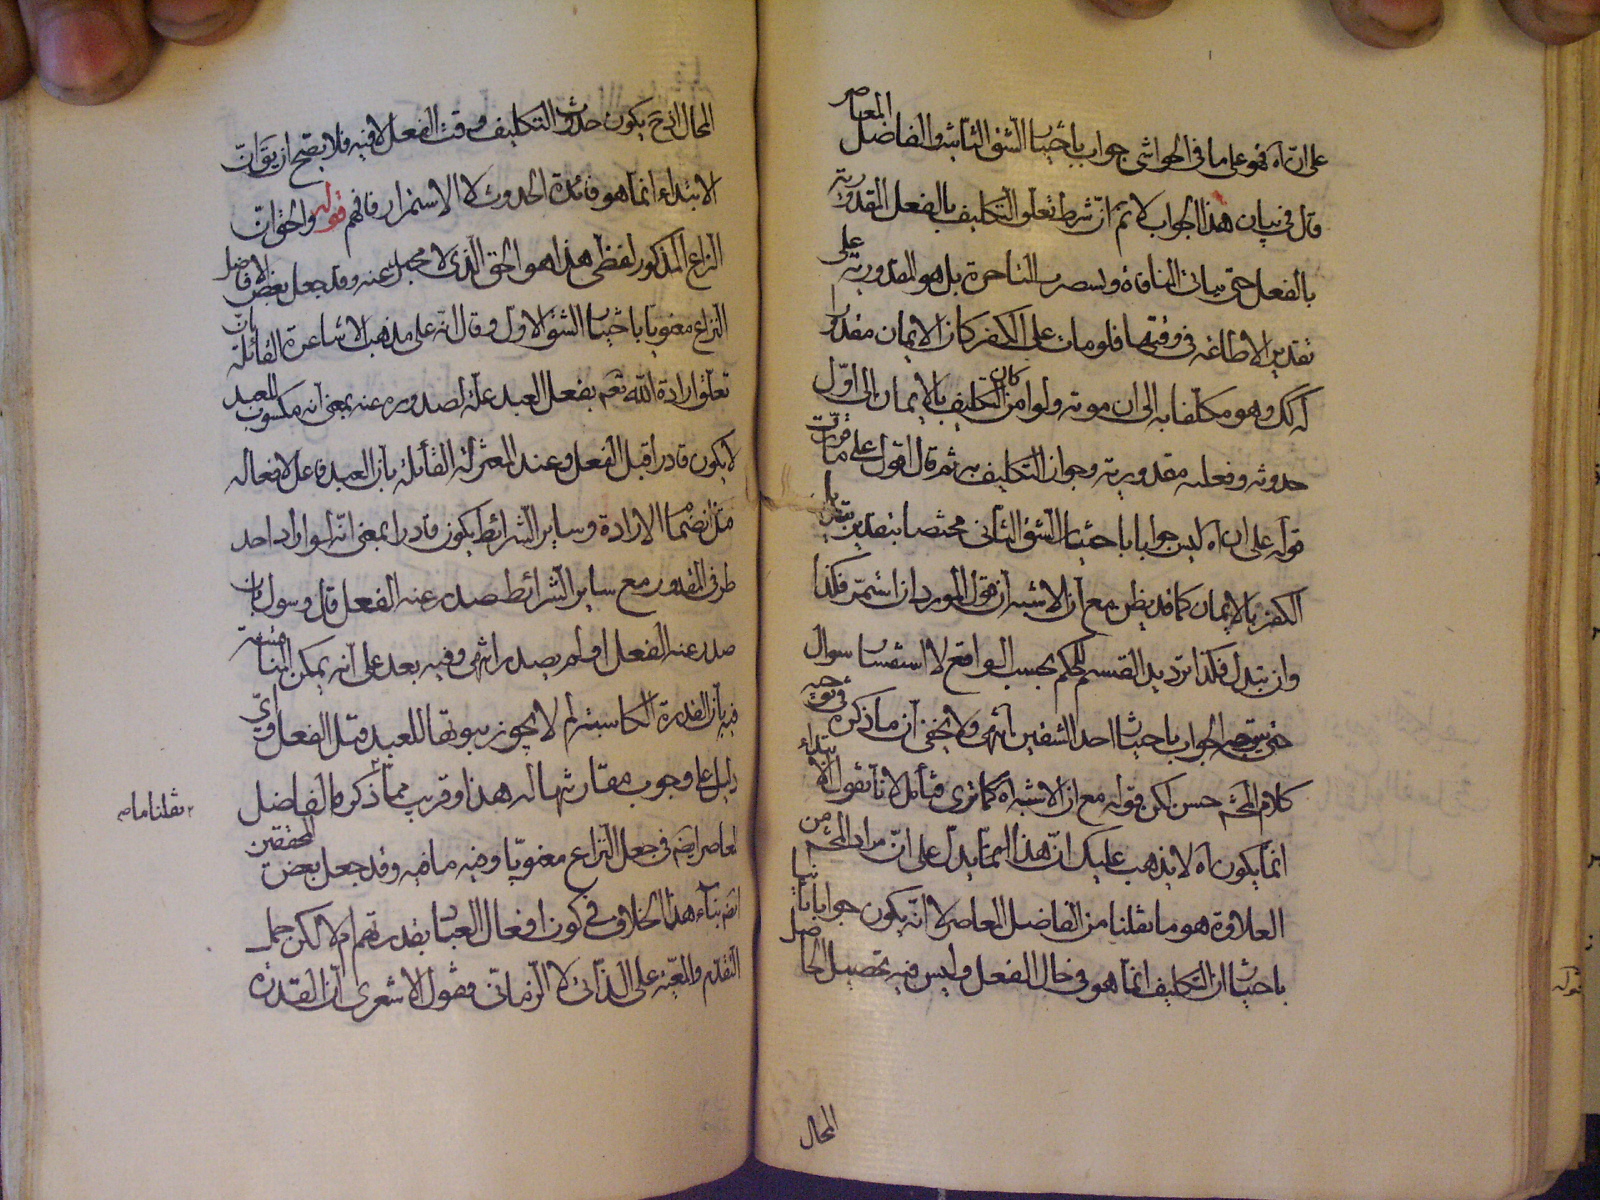 على ان اه فهو على ما فى الحواشى جواب باختيار الشق الثانى والفاضل المعاصر
قال فى بيان هذا الجواب لا تم ان شرط تعلق التكليف بالفعل المقدورية
بالفعل حتى ينافى بل هو المقدورية على
تقدير الاطاعة فى وقتها فلو مات على الكفر كان الايمان مقدورا
له كك وهو مكلفا به الى ان موته ولو امن كان التكليف بالايمان الى اول
حدوثه وفعليه مقدوريته وجواز التكليف به ثم قال اقول على ما قررت
قوله على ان اه ليس جوابا باختيار الشق الثانى مختصا بتقدير تبديل
الكفر بالايمان كما قد يظن مع ان الاشبه ان قول المورد ان استمر فكذا
وان تبدل فكذا ترديد القسم للحكم بحسب الواقع لا استفسار سوال
حتى يتوجه الجواب باختيار احد الشقين انتهى ولا يخفى ان ما ذكره فى توجيه
كلام المحشى حسن لكن قوله مع ان الاشبه اه كما ترى فتأمل لانا نقول الابتداء
انما يكون اه لا يذهب عليك ان هذا انما يدل على ان مراد المحشى من
العلاوة هو ما نقلنا من الفاضل المعاصر لا انه يكون جوابا ثانيا
باختيار ان التكليف انما هو فى حال الفعل وليس فيه تحصيل الحاصل
المحال
المحال اذ ح يكون حدوث التكليف وقت الفعل لا فيه فلا يصح ان يق ان
الابتداء انما هو فائدة الحدوث لا الاستمرار فافهم قوله والحق ان
النزاع المذكور لفظى هذا هو الحق الذى لا محيد عنه وقد جعل بعض الافاضل
النزاع معنويا باختيار الشق الاول وقال انه على مذهب الاشاعرة القائلة بان
تعلق ارادة الله تعم بفعل العبد علة لصدوره عنه بمعنى انه مكسوب للعبد
لا يكون قادرا قبل الفعل وعند المعتزلة القائلة بان العبد فاعل لافعاله
مع انضمام الارادة وساير الشرائط يكون قادرا بمعنى انه لو اراد احد
طرفى المقدور مع ساير الشرائط صدر عنه الفعل قال وسواء كان
صدر عنه الفعل او لم يصدر انتهى وفيه بعد على انه يمكن المناقشة
فيه بان القدرة الكاسبة لم لا يجوز ثبوتها للعبد قبل الفعل واى
دليل على وجوب مقارنتها له هذا وقريب مما ذكره الفاضل
المعاصر ايضم فى جعل النزاع معنويا وفيه ما فيه وقد جعل بعض المحققين
ايضم بناء هذا الخلاف فى كون افعال العباد بقدرتهم ام لا لكن حمل
التقدم والمعية على الذاتى لا الزمانى فقول الاشعرى ان القدرة